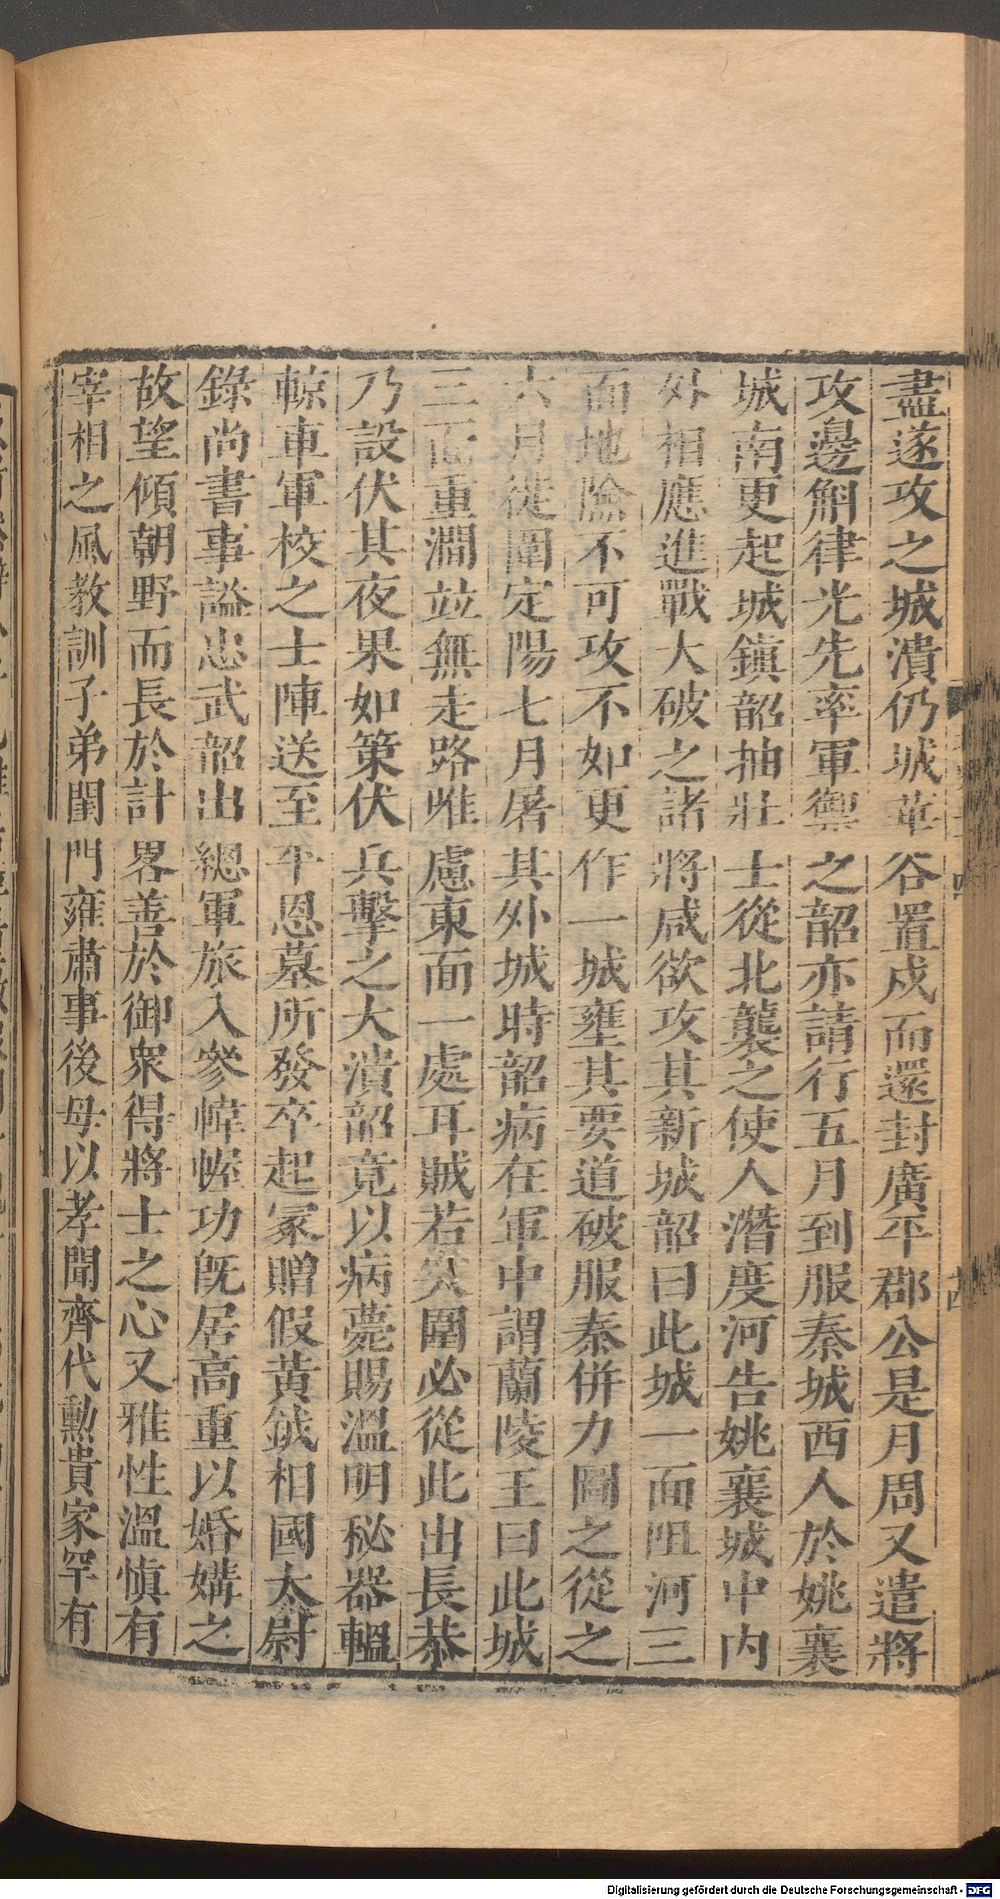 盡遂攻之城潰仍城華谷置戍而還封廣平郡公是月周又遣將
攻邊斛律光先率軍禦之韶亦請行五月到服秦城西人於姚襄
城南更起城鎮韶抽壯士從北襲之使人潛度河告姚襄城中內
外相應進戰大破之諸將咸欲攻其新城韶曰此城一面阻河三
面地險不可攻不如更作一城壅其要道破服秦併力圖之從之
六月徙圍定陽七月屠其外城時韶病在軍中謂蘭陵王曰此城
三面重澗竝無走路唯慮東面一處耳賊若突圍必從此出長恭
乃設伏其夜果如策伏兵擊之大潰韶竟以病薨賜溫明秘器轀
輬車軍校之士陣送至平恩墓所發卒起冢贈假黃鉞相國太尉
錄尚書事謚忠武韶出總軍旅入參幃幄功旣居高重以婚媾之
故望傾朝野而長於計畧善於御衆得將士之心又雅性溫慎有
宰相之風教訓子弟閨門雍肅事後母以孝聞齊代勳貴家罕有
Digitalisierung gefördert durch die Deutsche Forschungsgemeinschaft - DFG